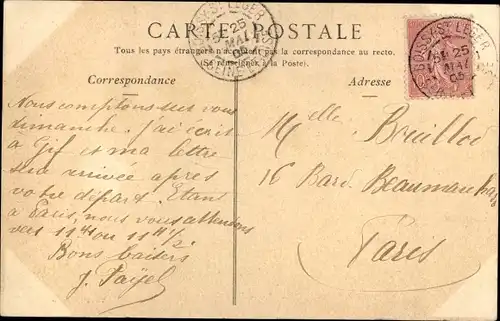 CARTE POSTALE
Tous les pays étrangers n'acceptent pas la correspondance au recto.
(Se renseigner à la Poste).
Correspondance
Adresse
BOISSY-ST LEGER
25
MAI
05
SEINE
BOISSY-ST LEGER
25
MAI
05
Nous comptons sur vous
dimanche. j'ai écrit
à Gif et ma lettre
sera arrivée après
votre départ. Etant
à Paris, nous vous attendons
vers 11h ou 11h 1/2
Bons baisers
J.
Melle
16 Bard Beaumarchais
Paris